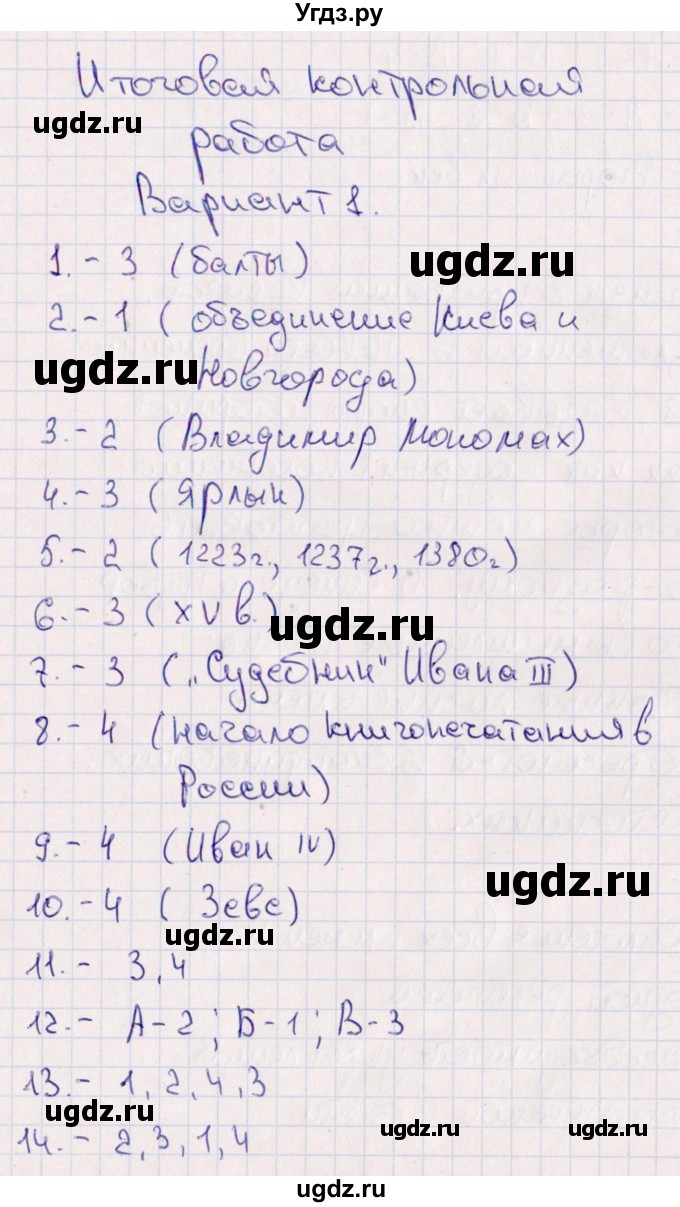 Угдз.ру
Итоговая контрольная
ugdz.ru
работа
Вариант 1.
1. - 3 (балты)
ugdz.ru
2. - 1 (объединение Киева и
ugdz.ru
Новгорода)
3. - 2 (Владимир Мономах)
4. - 3 (Ярлык)
5. - 2 (1223г., 1237г., 1380г)
6. - 3 (XV в.)
ugdz.ru
7. - 3 („Судебник" Ивана III)
8. - 4 (начало книгопечатания в
России)
9. - 4 (Иван IV)
ugdz.ru
10. - 4 (Зевс)
ugdz.ru
11. - 3, 4
12. - А - 2; Б - 1; В - 3
13. - 1, 2, 4, 3
ugdz.ru
14. - 2, 3, 1, 4
ugdz.ru
ugdz.ru
ugdz.ru